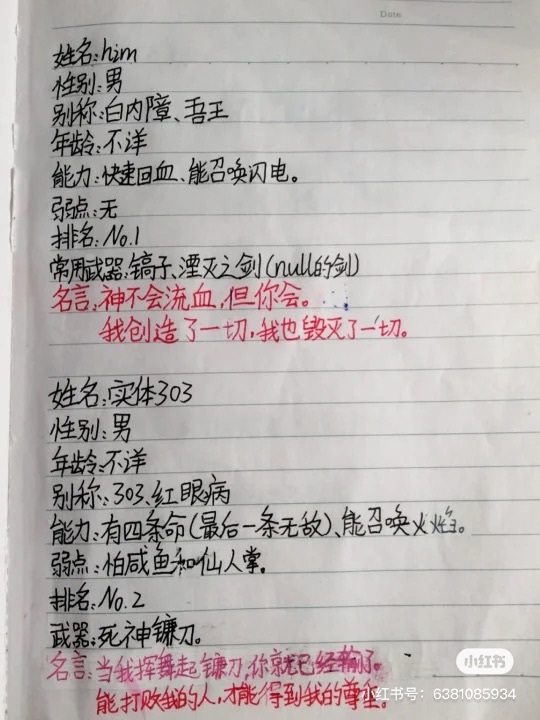 Date
姓名:him
性别:男
别称:白内障、吾王
年龄:不洋
能力:快速回血、能召唤闪电。
弱点:无
排名:No.1
常用武器:镐子、湮灭之剑(null的剑)
名言:神不会流血,但你会。
我创造了一切,我也毁灭了一切。
姓名:实体303
性别:男
年龄:不洋
别称:303、红眼病
能力:有四条命(最后一条无敌)、能召唤火焰。
弱点:怕咸鱼和仙人掌。
排名:No.2
武器:死神镰刀。
名言:当我挥舞起镰刀,你就已经输了。
能打败我的人,才能得到我的尊重。
小红书
小红书号:6381085934